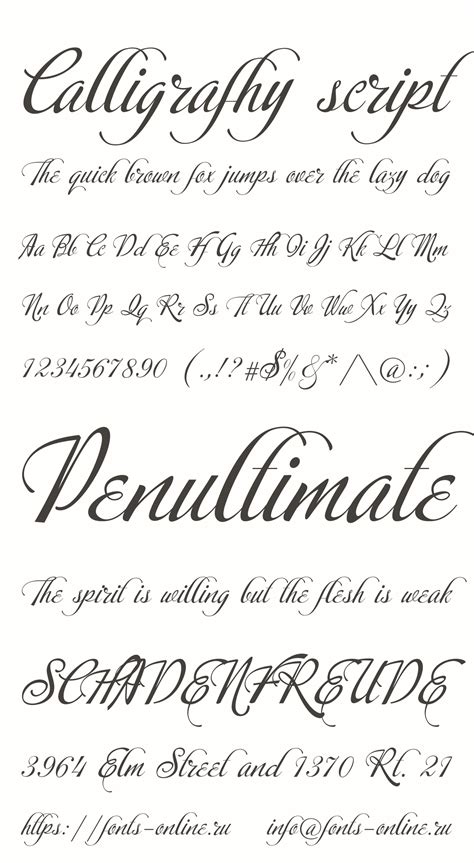 Calligrafhy script
The quick brown fox jumps over the lazy dog
Aa Bb Cc Dd Ee Ff Gg Hh Ii Jj Kk Ll Mm
Nn Oo Pp Qq Rr Ss Tt Uu Vv Ww Xx Yy Zz
1234567890 (.,!?#$%&*/\@:;)
Penultimate
The spirit is willing but the flesh is weak
SCHADENFREUDE
3964 Elm Street and 1370 Rt. 21
https://fonts-online.ru info@fonts-online.ru